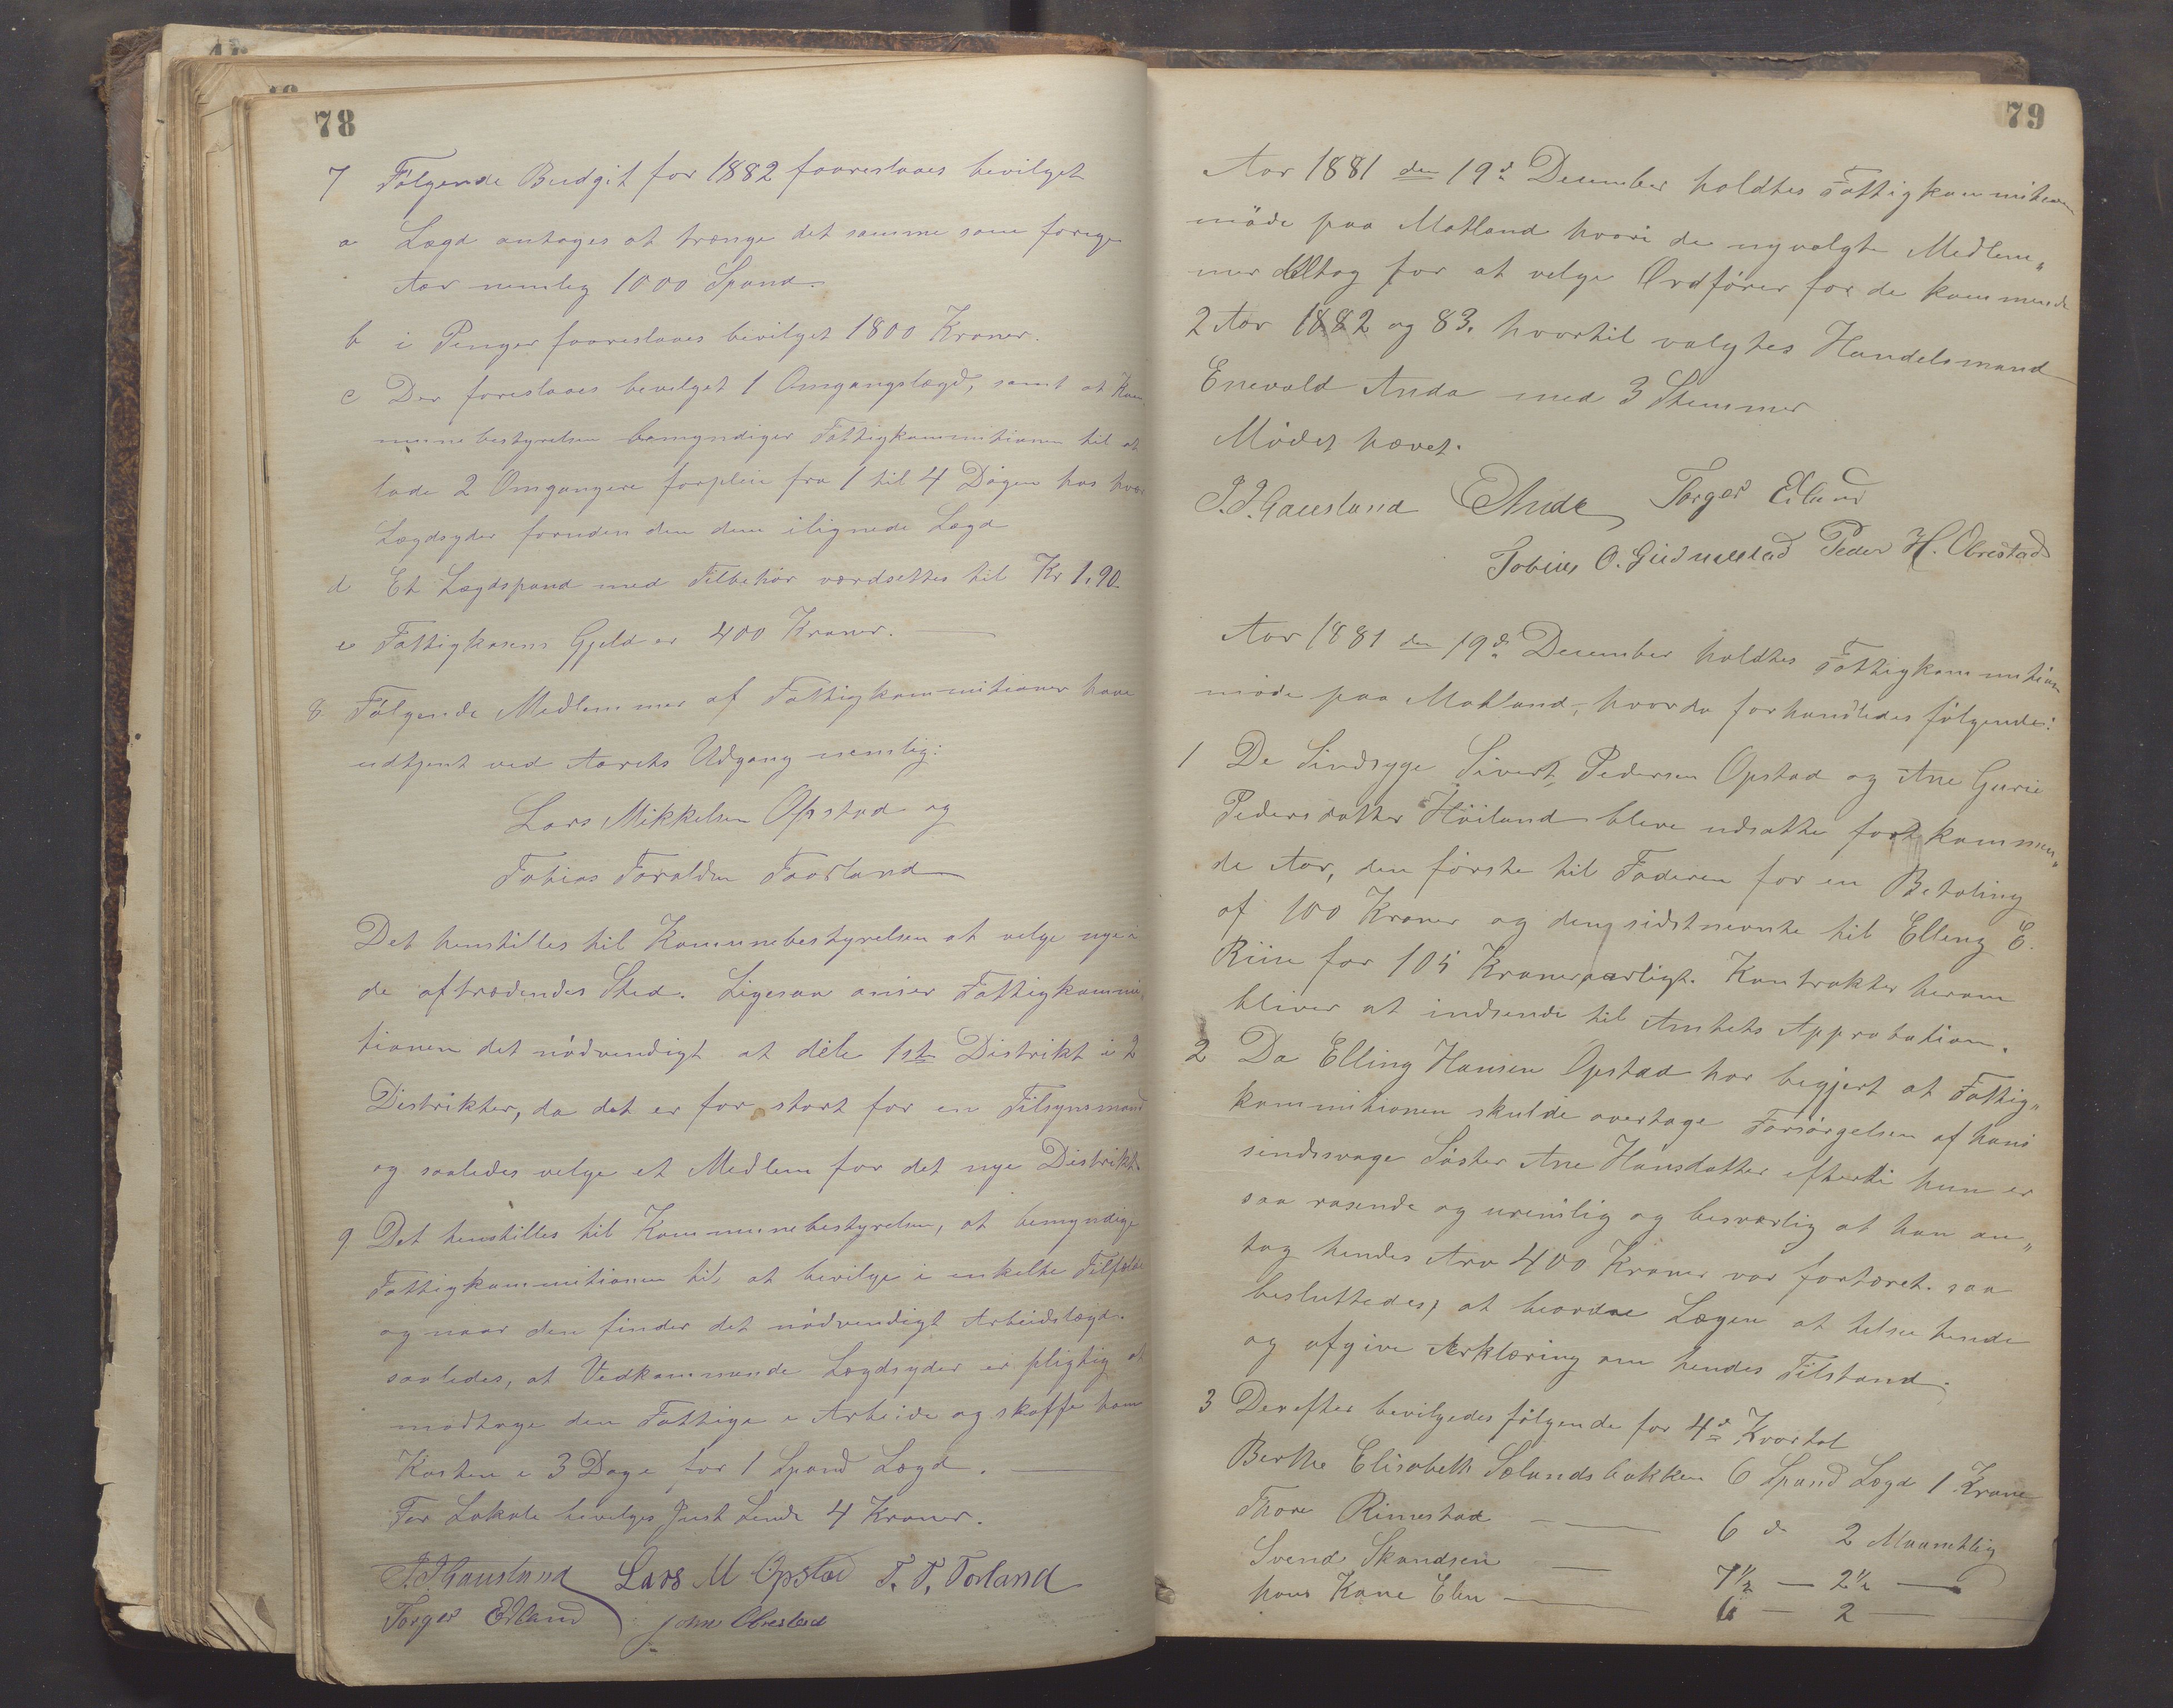 78
7 Følgende Budgit for 1882 foareslaaes bevilget
a Lægd antages at trænge det samme som forige
Aar nemlig 1000 Spand.
b i Penger foareslaaes bevilget 1800 Kroner.
c Der foreslaaes bevilget 1 Omgangslægd, samt at Kom-
munebestyrelsen bemyndiger Fattigkommitionen til at
lade 2 Omgangere forpleie fra 1 til 4 Dagen hos hver
Lægdsyder foruden den dem ilignede Lægd
d Et Lægdspand med Tilbehør værdsettes til Kr 1.90
e Fattigkasens Gjeld er 400 Kroner.
8 Følgende Medlemmer af Fattigkommitionen have
udtjent ved Aarets Udgang nemlig:
Lars Mikkelsen Opstad og
Tobias Taralden Taarland
Det henstilles til Komunebestyrelsen at velge nye i
de aftrædendes Sted. Ligesaa anser Fattigkommi-
tionen det nødvendigt at dele 1ste Distrikt i 2
Distrikter, da det er for stort for en Tilsynsmand
og saaledes velge et Medlem for det nye Distrikt
9 Det henstilles til Kommunebestyrelsen, at bemyndige
Fattigkommitionen til, at bevilge i enkelte Tilfælde
og naar den finder det nødvendigt Arbeidslægd.
saaledes, at Vedkommende Lægdsyder er pligtig at
modtage den Fattige i Arbeide og skaffe ham
Kosten i 3 Dage for 1 Spand Lægd.
For Lokale bevelges Just Lende 4 Kroner.
J. J. Gausland Lars M Opstad T. T. Torland
Torger Edland John Obrestad
79
Aar 1881 den 19de December holdtes Fattigkommitions
møde paa Motland hvori de nyvalgte Medlem„
mer deltog for at velge Ordfører for de kommende
2 Aar 1882 og 83. hvortil valgtes Handelsmand
Enevald Anda med 3 Stemmer
Mødet hævet.
J. J. Gausland E Anda Torger Edland
Tobias O. Gudmestad Peder H. Obrestad
Aar 1881 den 19de December holdtes Fattigkommitions
møde paa Motland, hvorda forhandledes følgende:
1 De Sindsyge Sivert Pedersen Opstad og Ane Gurie
Pedersdatter Høiland bleve udsatte for kommen„
de Aar, den første til Faderen for en Betaling
af 100 Kroner og den sidstnevnte til Elling E.
Riise for 105 Kroner aarligt. Kontrakter herom
bliver at indsende til Amtets Approbation.
2 Da Elling Hansen Opstad har begjert at Fattig„
kommitionen skulde overtage Forsørgelsen af hans
sindssvage Søster Ane Hansdatter efterdi hun er
saa rasende og urenilig og besværlig at han an„
tog hendes Arv 400 Kroner var fortæret. saa
besluttedes, at beordre Lægen at tilse hende
og afgive Ærklæring om hendes Tilstand.
3 Derefter bevilgedes følgende for 4de Kvartal
Berthe Elisabeth Sælandsbakken 6 Spand Lægd 1 Krone
Thore Rimestad — 6 do 2 Maanetlig
Svend Skandsen — 7½ — 2½ —
hans Kone Elen — 6 — 2 —